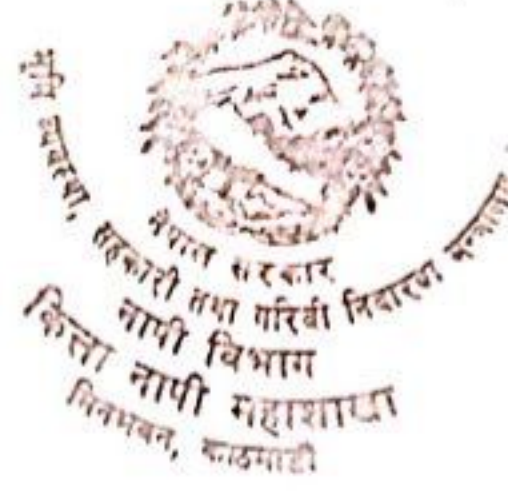 नेपाल सरकार
भूमि व्यवस्था, सहकारी तथा गरिवी निवारण मन्त्रालय
नापी विभाग
कित्ता नापी महाशाखा
मिनभवन, काठमाडौं